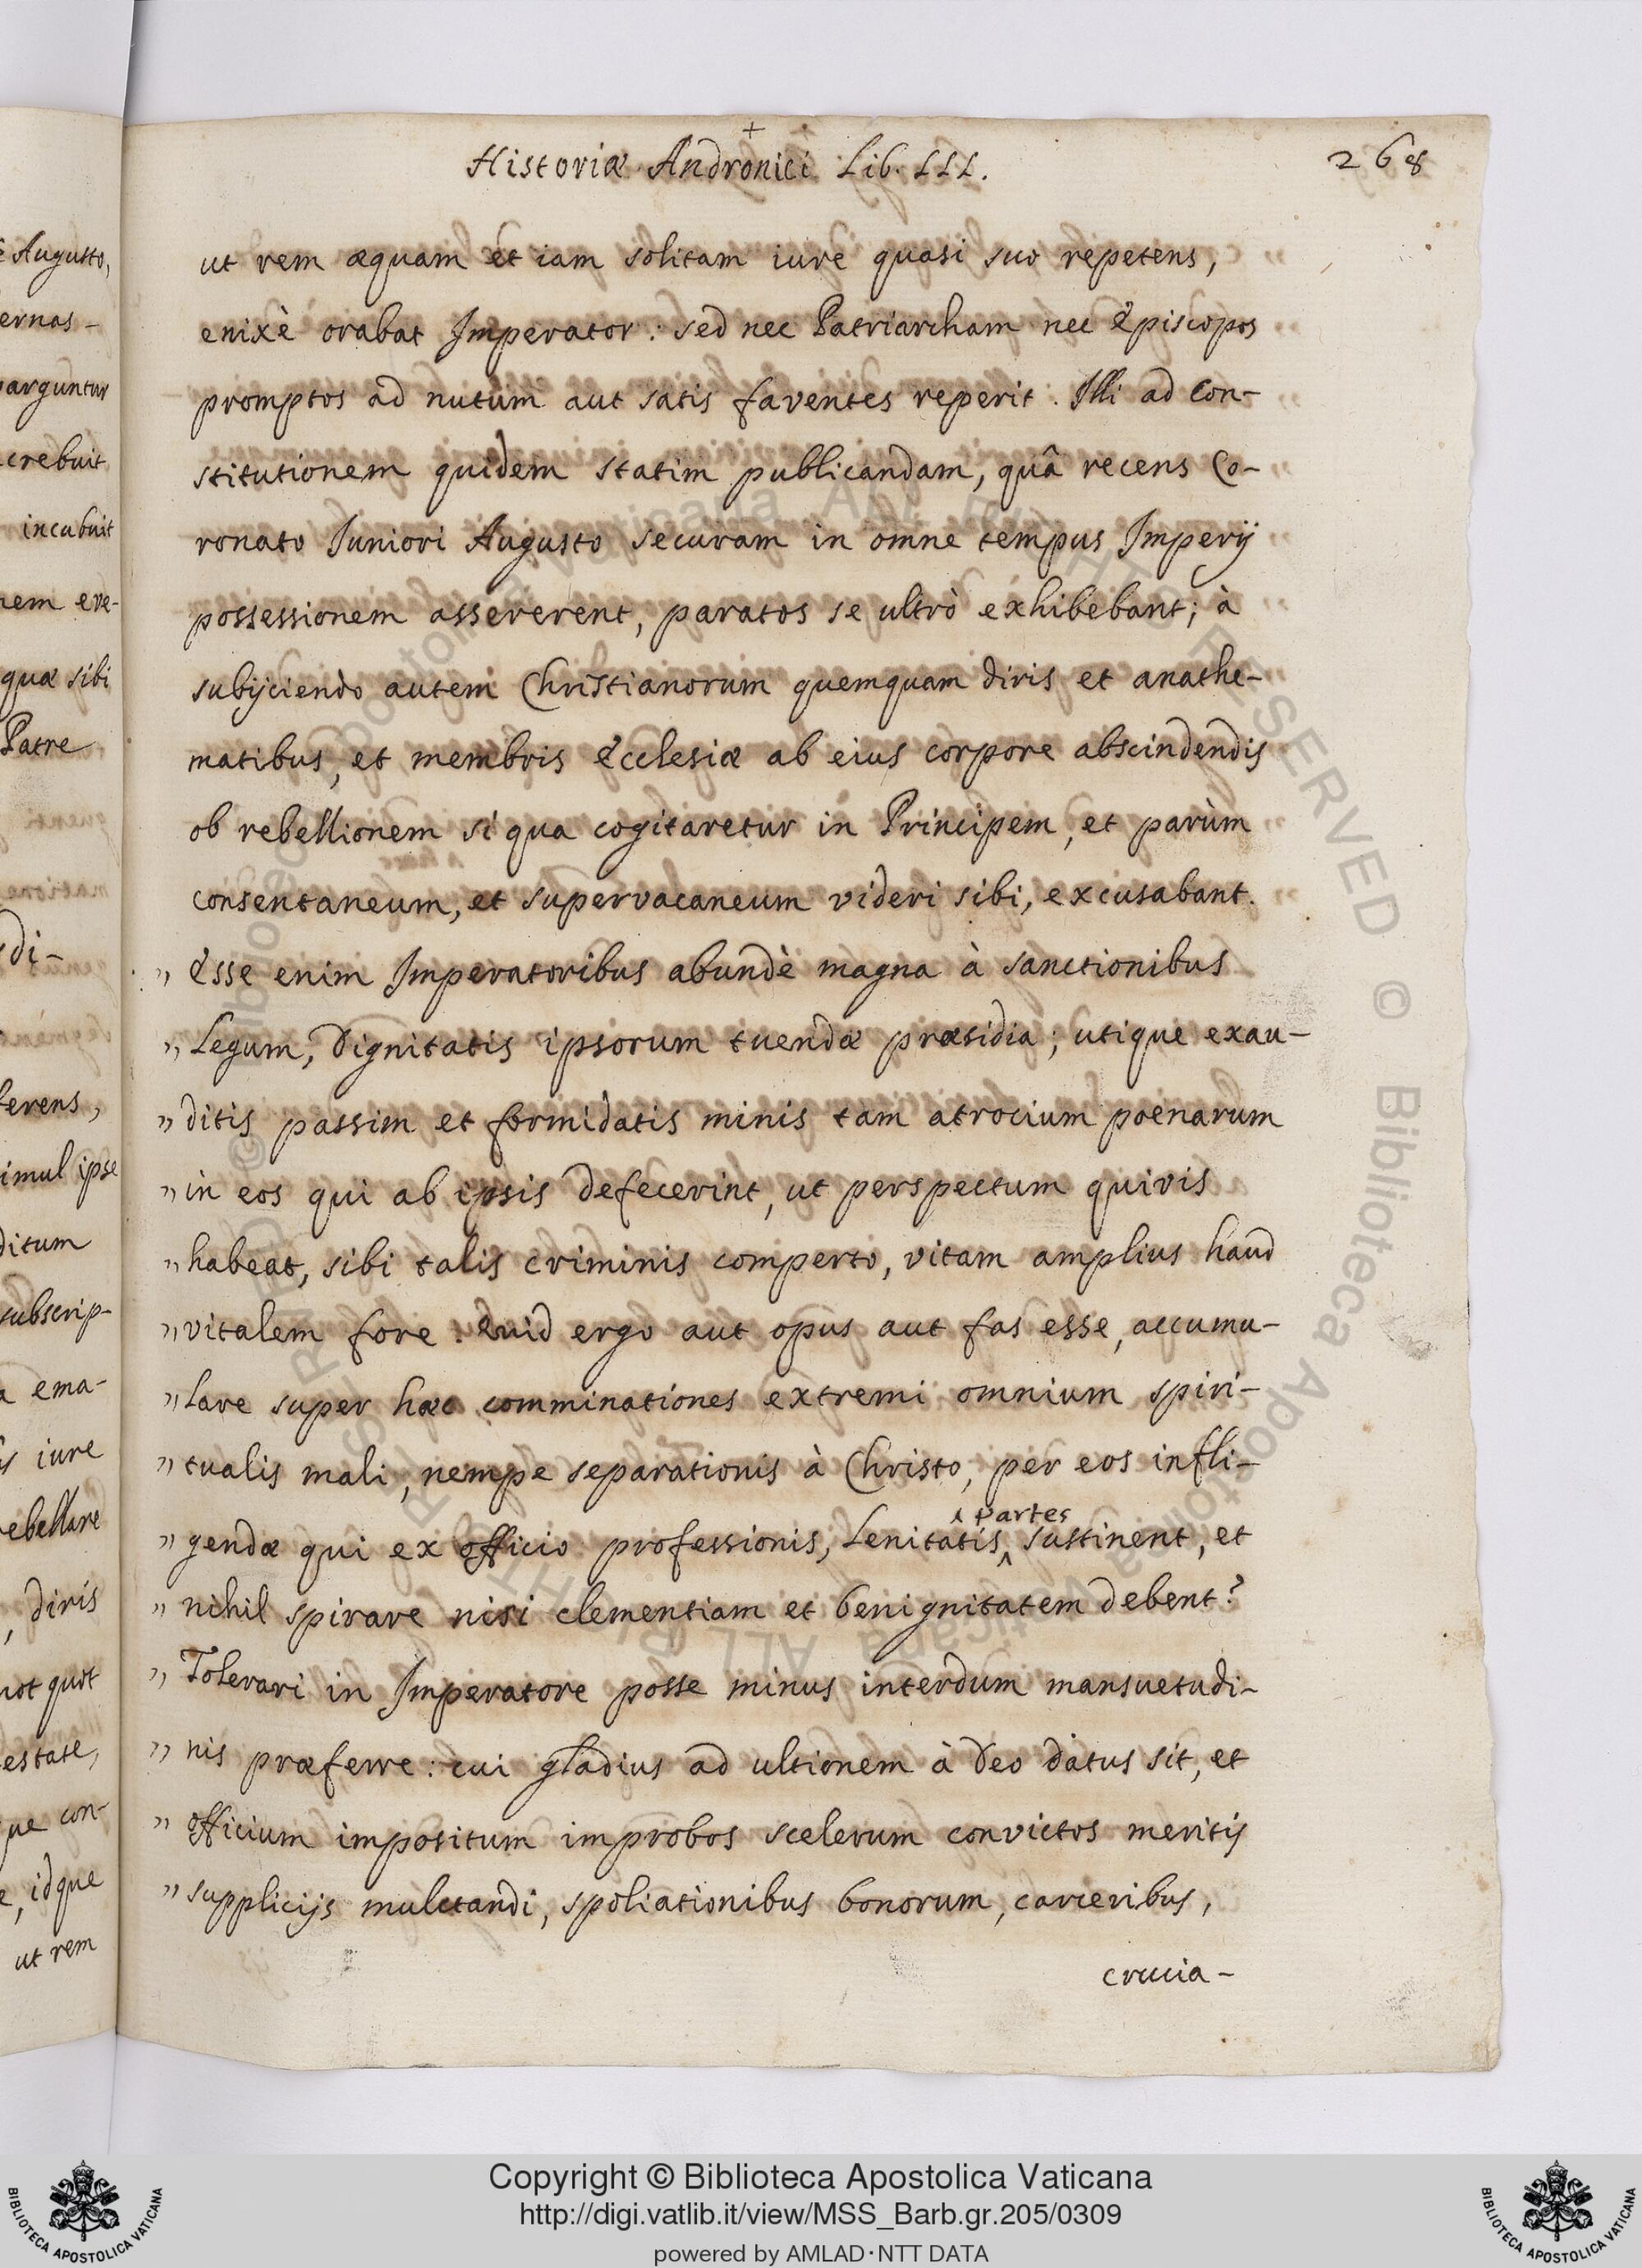 Historiæ Andronici Lib. III.
268
ut rem æquam et iam solitam iure quasi suo repetens,
enixè orabat Imperator: sed nec Patriarcham nec Episcopos
promptos ad nutum aut satis faventes reperit. Illi ad con-
stitutionem quidem statim publicandam, quâ recens Co-
ronato Iuniori Augusto securam in omne tempus Imperij
possessionem assererent, paratos se ultrò exhibebant; à
subijciendo autem Christianorum quemquam diris et anathe-
matibus, et membris Ecclesiæ ab eius corpore abscindendis
ob rebellionem si qua cogitaretur in Principem, et parùm
consentaneum, et supervacaneum videri sibi, excusabant.
" Esse enim Imperatoribus abundè magna à sanctionibus
" Legum, Dignitatis ipsorum tuendæ præsidia; utique exau-
" ditis passim et formidatis minis tam atrocium poenarum
" in eos qui ab ipsis defecerint, ut perspectum quivis
" habeat, sibi talis criminis comperto, vitam amplius haud
" vitalem fore. Quid ergo aut opus aut fas esse, accumu-
" lare super hæc comminationes extremi omnium spiri-
" tualis mali, nempe separationis à Christo, per eos infli-
" gendæ qui ex officio professionis, Lenitatis partes sustinent, et
" nihil spirare nisi clementiam et benignitatem debent?
" Tolerari in Imperatore posse minus interdum mansuetudi-
" nis præferre: cui gladius ad ultionem à Deo datus sit, et
" officium impositum improbos scelerum convictos meritis
" supplicijs mulctandi, spoliationibus bonorum, carceribus,
crucia-
e Augusto,
ernas-
arguntur
crebuit
incubuit
nem eve-
quæ sibi
Patre
di-
ferens,
imul ipse
ditum
subscrip-
a ema-
iure
ebellare
, diris
not quot
estate,
que con-
e, idque
ut rem
© Biblioteca Apostolica Vaticana ALL RIGHTS RESERVED © Biblioteca Apostolica Vaticana ALL RIGHTS RESERVED
Copyright © Biblioteca Apostolica Vaticana
http://digi.vatlib.it/view/MSS_Barb.gr.205/0309
powered by AMLAD·NTT DATA
BIBLIOTECA APOSTOLICA VATICANA
BIBLIOTECA APOSTOLICA VATICANA